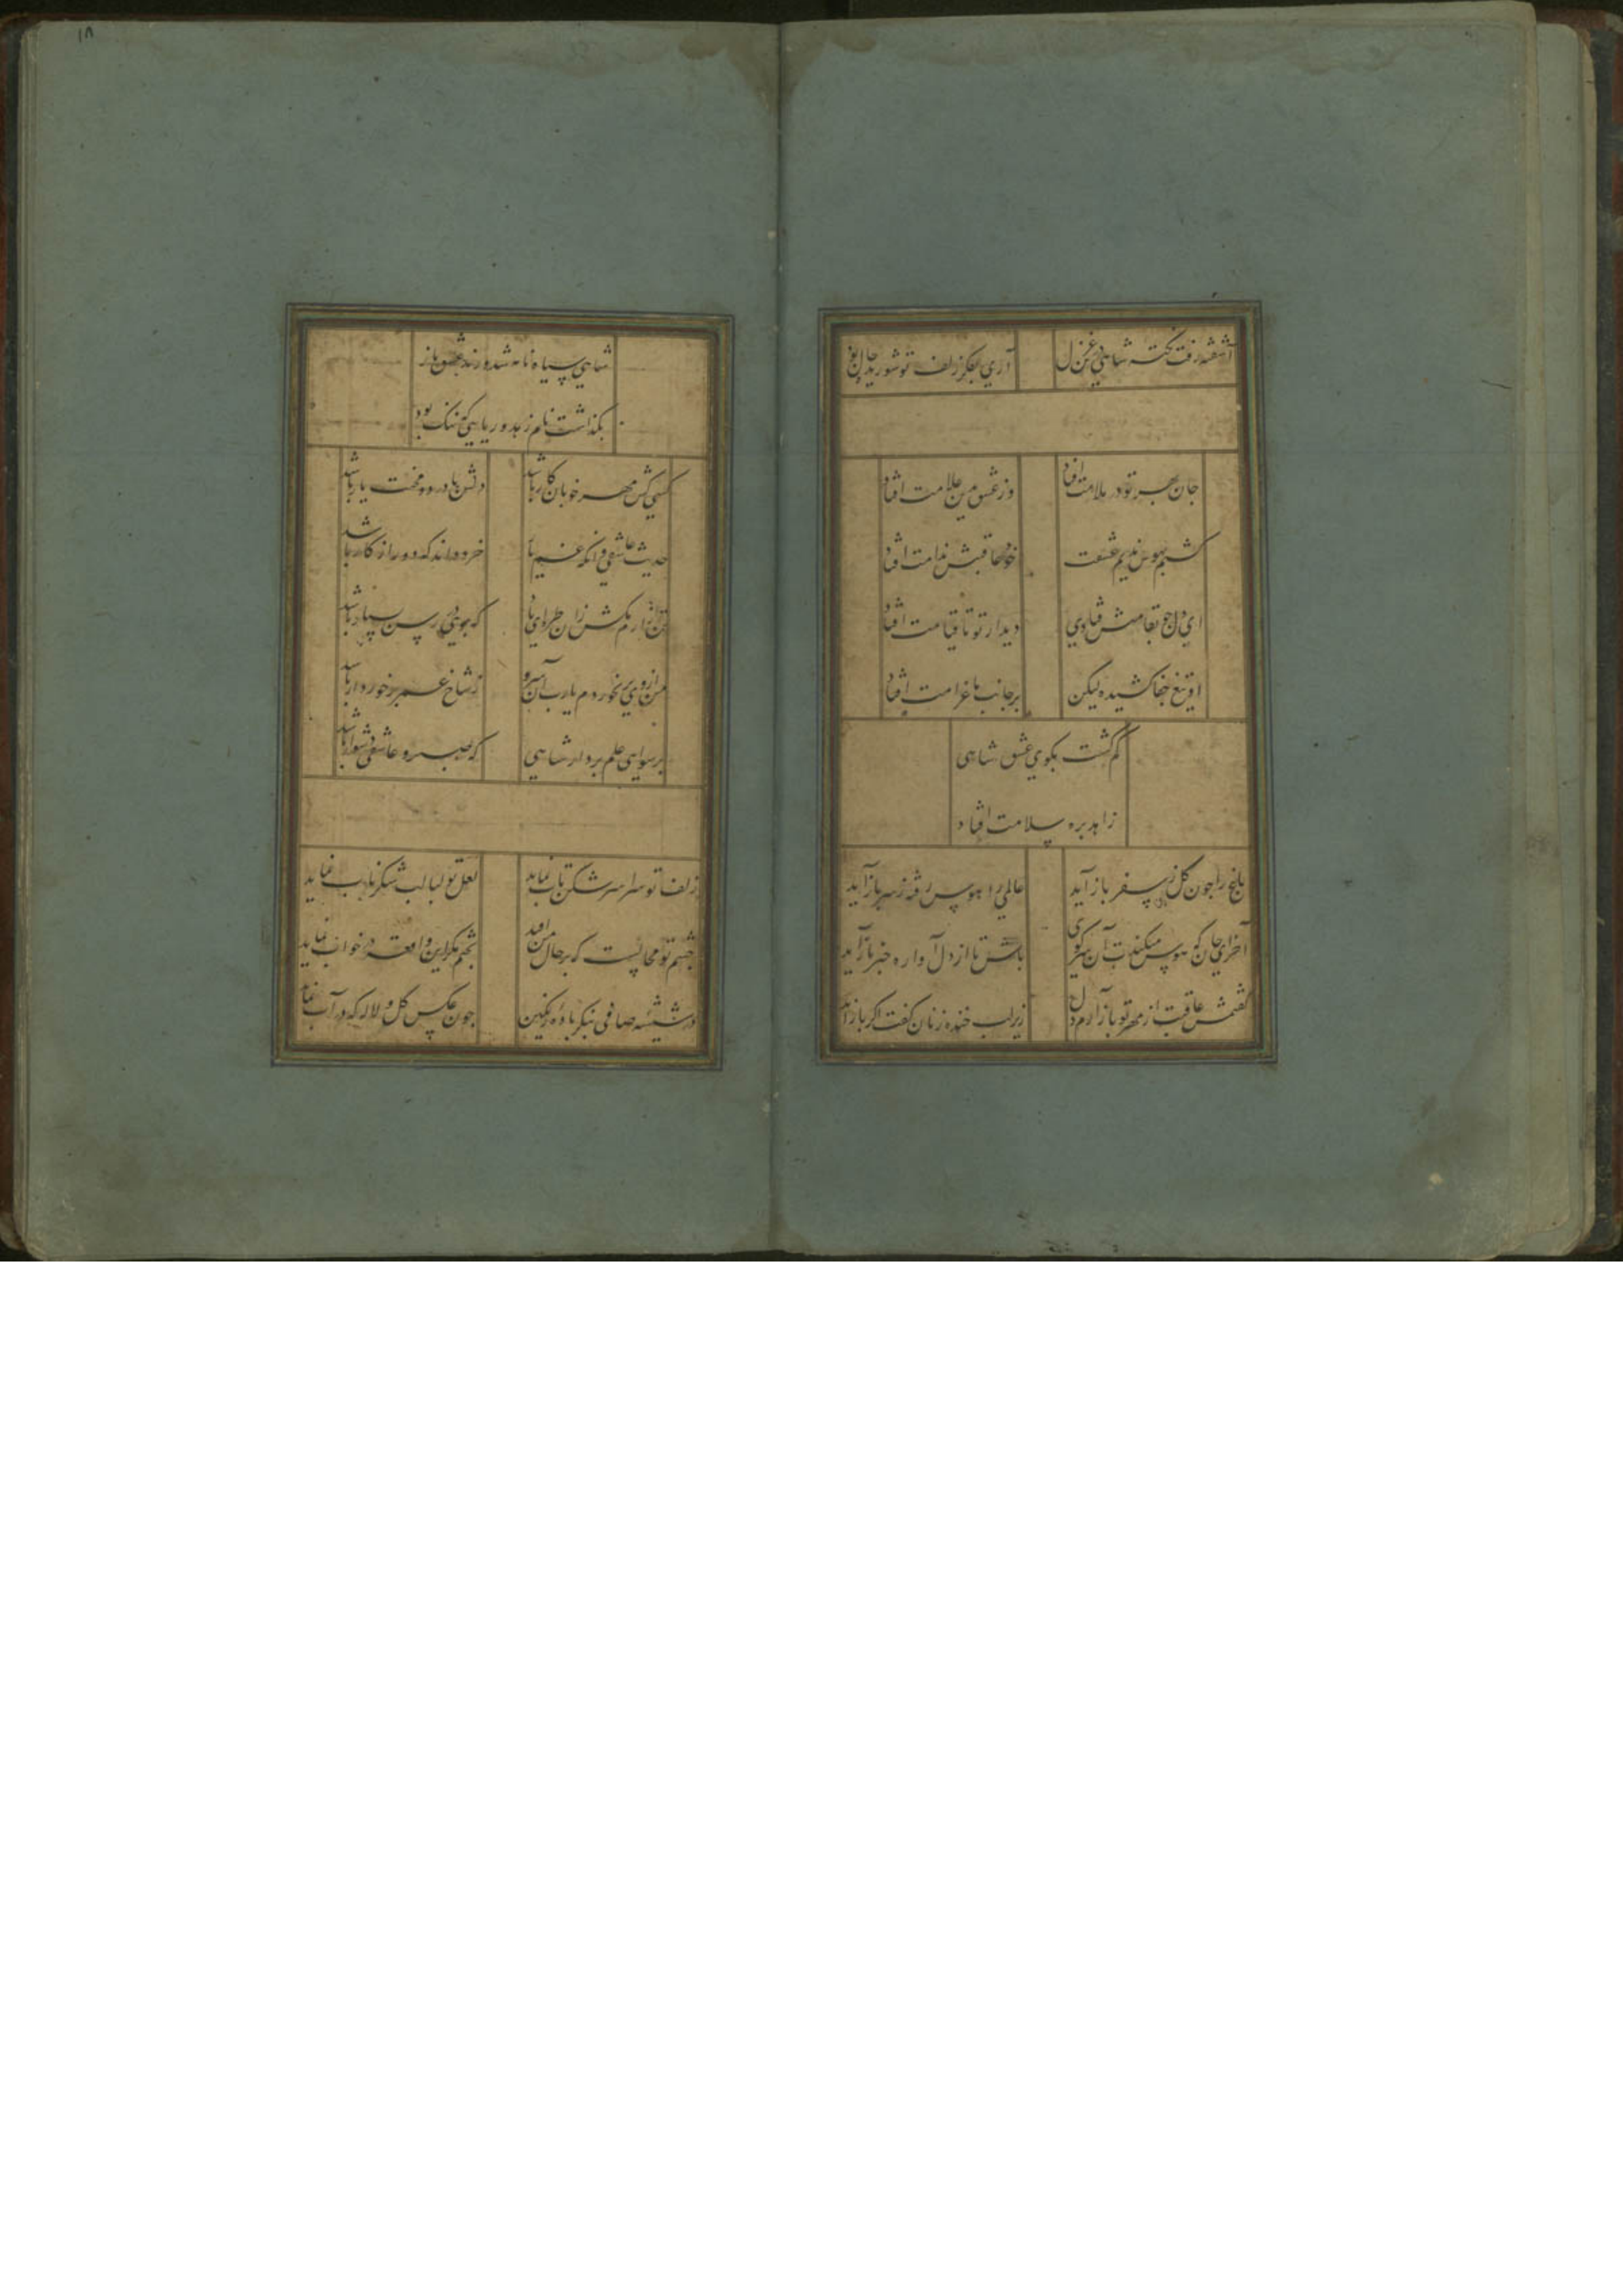 آشفته رفت نکته شاهی در غزل
آری بفکر زلف تو شوریده حال بود
جان بهر تو در ملامت افتاد
وز عشق من علامت افتاد
گشتم بهوس ندیم عشقت
خود عاقبتش ندامت افتاد
دیدار تو تا قیامت افتاد
او تیغ جفا کشیده لیکن
بر جانب ما غرامت افتاد
گم گشت بکوی عشق شاهی
زاهد بره سلامت افتاد
باغ را چون گل ز سفر باز آید
عالمی را هوس رفته ز سر باز آید
آخر ای جان که هوس میکندت آن سر کوی
باش تا از دل آواره خبر باز آید
گفتمش عاقبت از مهر تو باز آرم دل
زیر لب خنده زنان گفت اگر باز آید
شاهی سیاه نامه شد و رند عشق باز
بگذاشت نام زهد و ریایی که ننگ بود
کسی کش مهر خوبان کار باشد
دلش با درد و محنت یار باشد
حدیث عاشقی وانگه غم
خرد داند که دور از کار باشد
من از وی بر نخوردم یارب آن سرو
ز شاخ عمر برخوردار باشد
برسوایی علم بردار شاهی
که صبر و عاشقی دشوار باشد
زلف تو سراسر شکن تاب نماید
لعل تو لبالب شکر ناب نماید
چشم تو محالست که بر حال من افتد
بختم مگر این واقعه در خواب نماید
در شیشه صافی بنگر باده رنگین
چون عکس گل و لاله که در آب نماید
۱۸